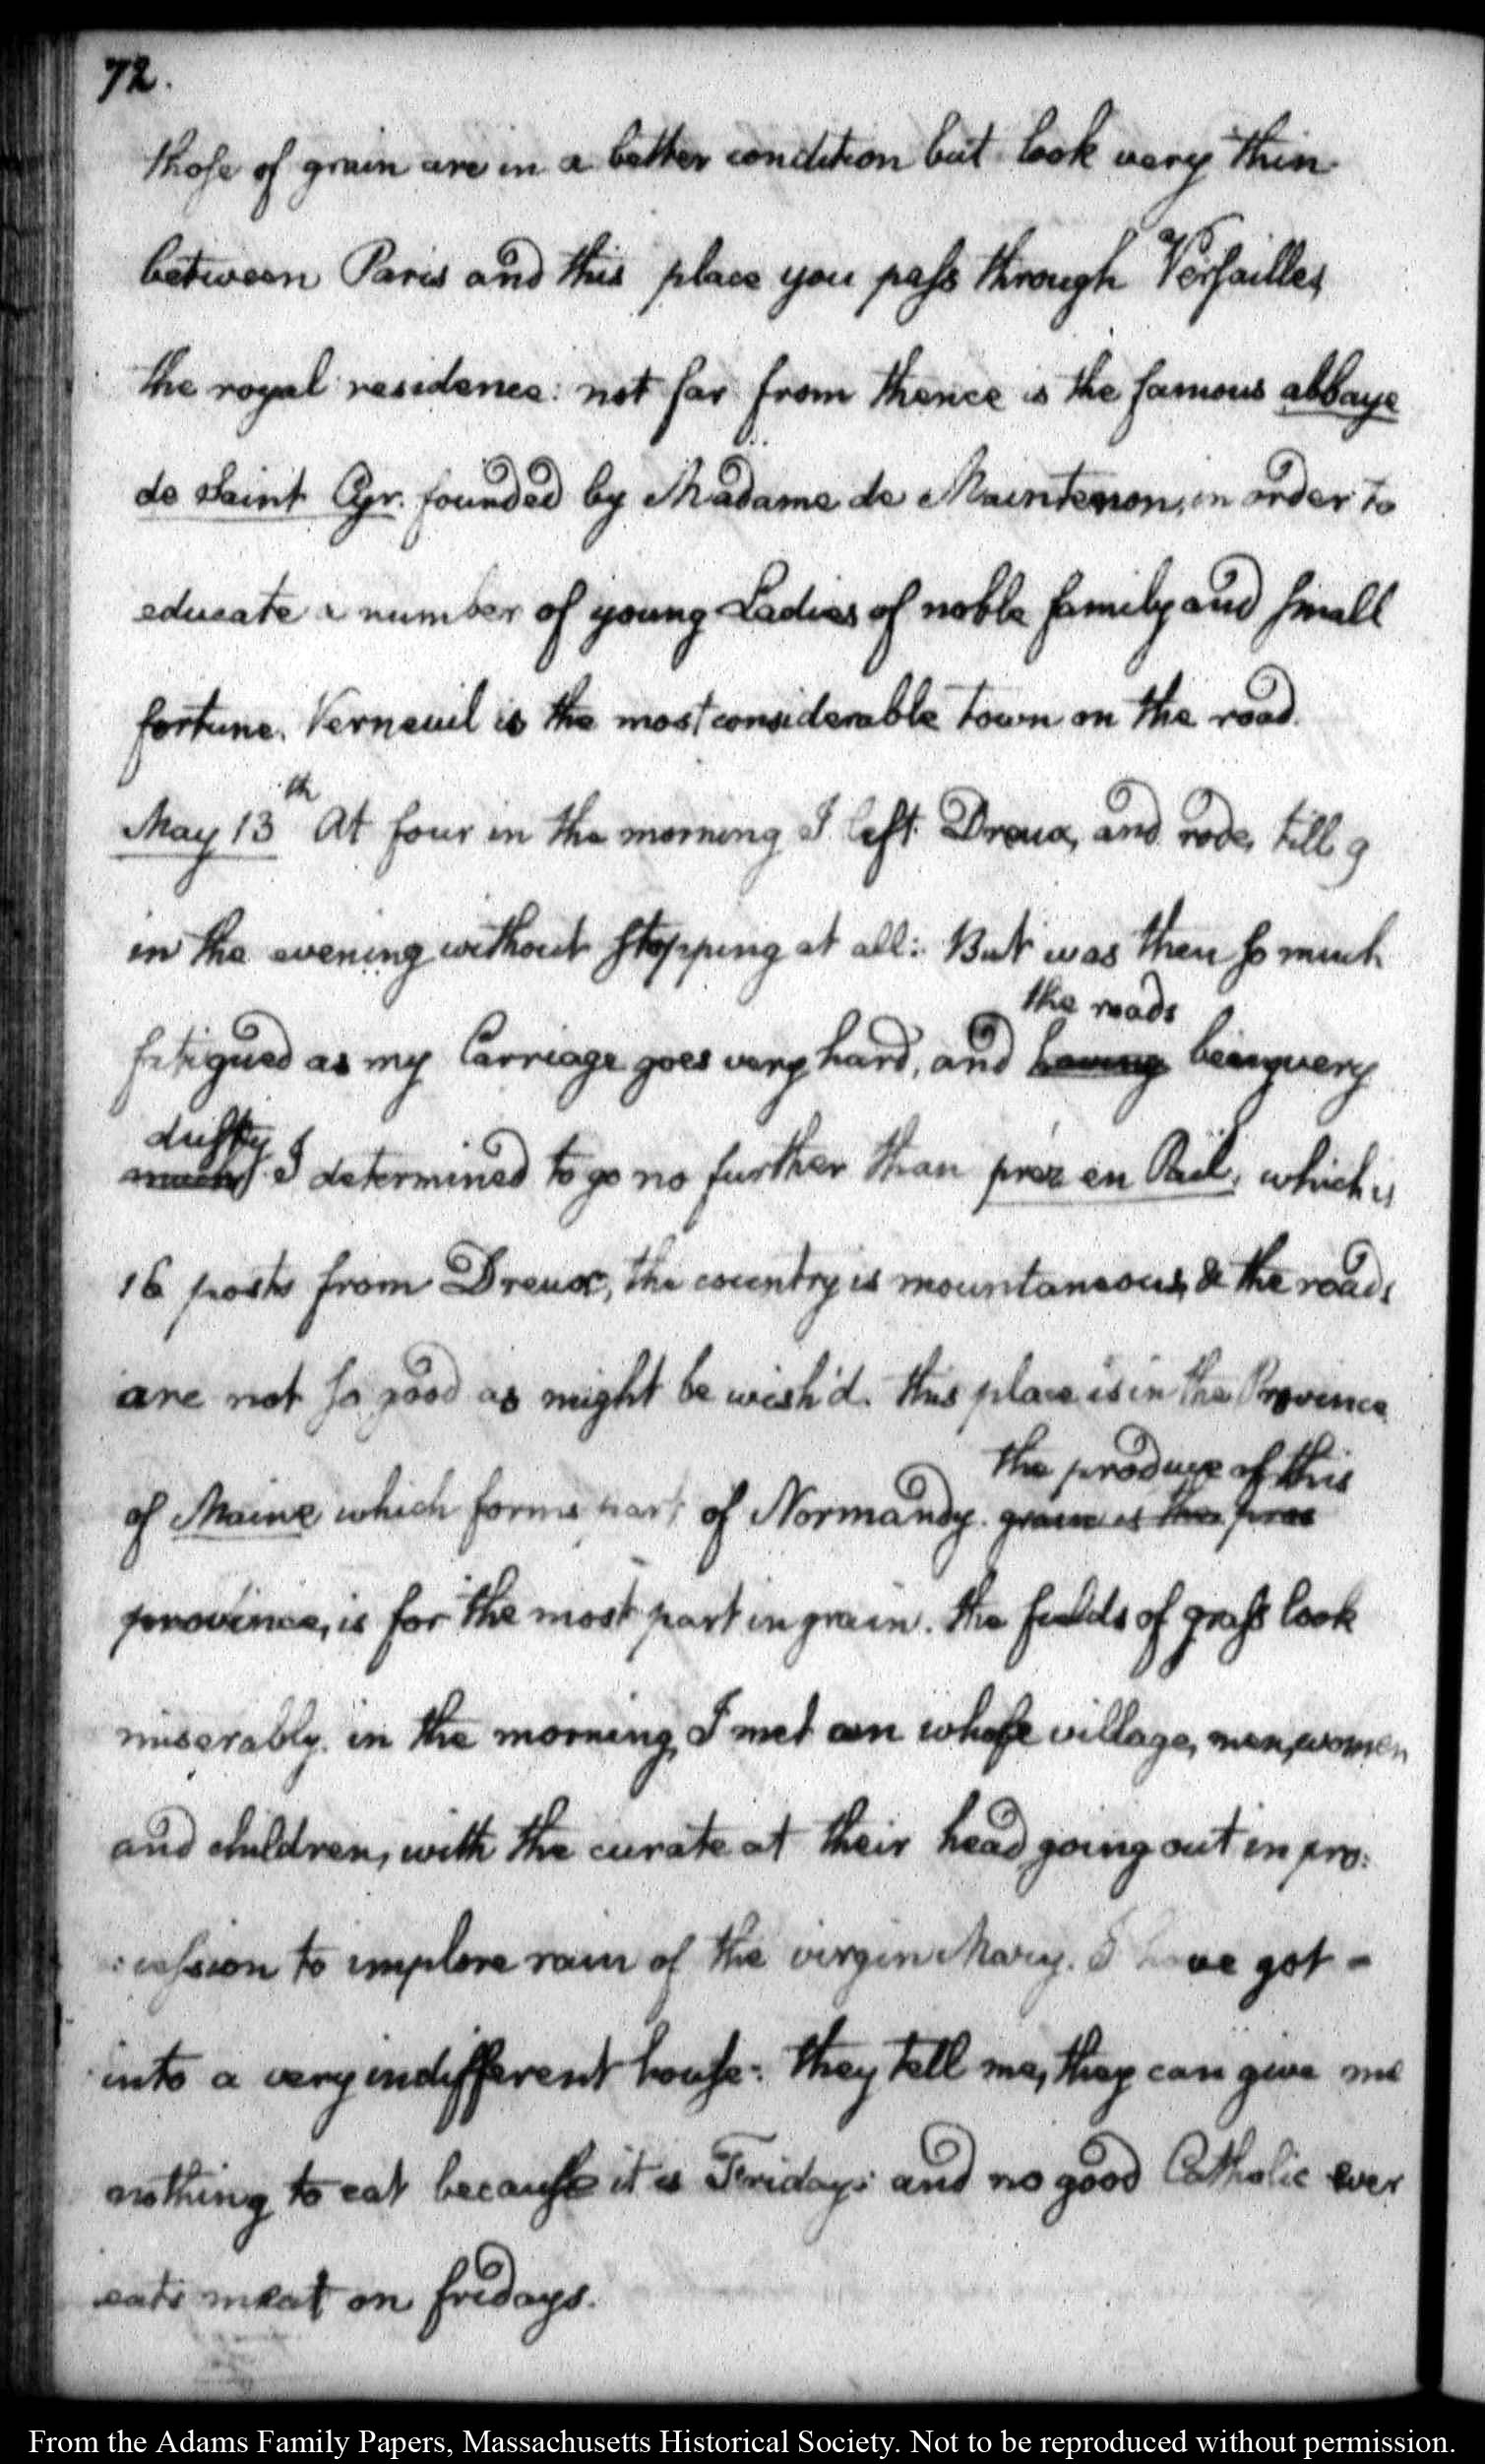 72.
those of grain are in a better condition but look very thin
between Paris and this place you pass through Versailles
the royal residence: not far from thence is the famous abbaye
de Saint Cyr. founded by Madame de Maintenon, in order to
educate a number of young Ladies of noble family and small
fortune. Verneuil is the most considerable town on the road.
May 13th At four in the morning I left Dreux, and rode, till 9
in the evening without stopping at all: But was then so much
the roads
fatigued as my Carriage goes very hard, and having being very
dusty
much I determined to go no further than préz en Pail, which is
16 posts from Dreux, the country is mountaneous, & the roads
are not so good as might be wish'd. this place is in the Province
the produce of this
of Maine which forms part of Normandy. grain is the prod
province, is for the most part in grain. the fields of grass look
miserably. in the morning, I met an whole village, men, women
and children, with the curate at their head going out in pro:
:cession to implore rain of the virgin Mary. I have got -
into a very indifferent house: they tell me, they can give me
nothing to eat because it is Friday: and no good Catholic ever
eats meat on fridays.
From the Adams Family Papers, Massachusetts Historical Society. Not to be reproduced without permission.